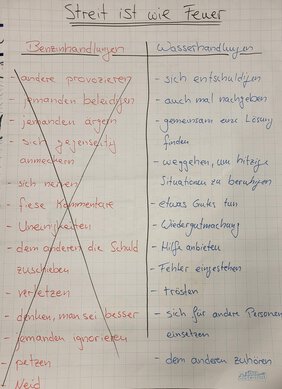 Streit ist wie Feuer
Benzinhandlungen
- andere provozieren
- jemanden beleidigen
- jemanden ärgern
- sich gegenseitig
anmeckern
- sich nerven
- fiese Kommentare
- Uneinigkeiten
- dem anderen die Schuld
zuschieben
- verletzen
- denken, man sei besser
- jemanden ignorieren
- petzen
- Neid
Wasserhandlungen
- sich entschuldigen
- auch mal nachgeben
- gemeinsam eine Lösung
finden
- weggehen, um hitzige
Situationen zu beruhigen
- etwas Gutes tun
- Wiedergutmachung
- Hilfe anbieten
- Fehler eingestehen
- trösten
- sich für andere Personen
einsetzen
- dem anderen zuhören